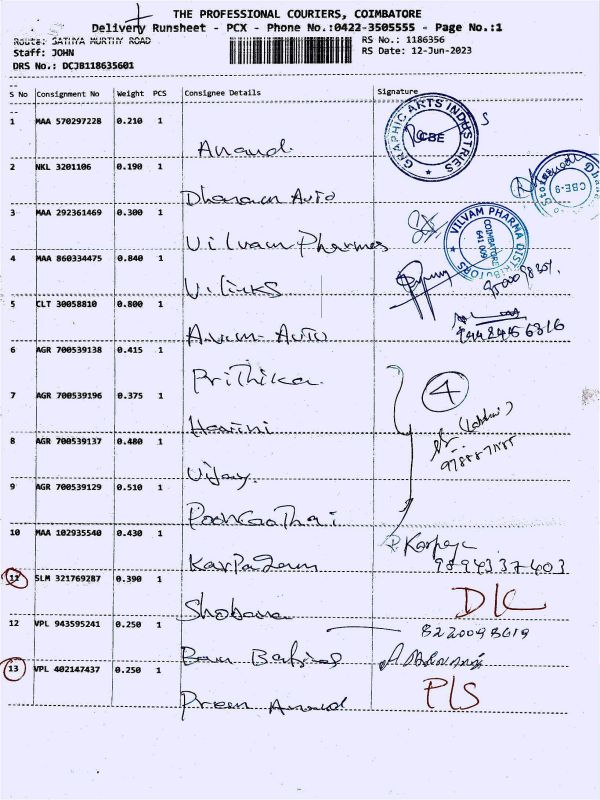 THE PROFESSIONAL COURIERS, COIMBATORE
Delivery Runsheet - PCX - Phone No.:0422-3505555 - Page No.:1
Route: SATHYA MURTHY ROAD
RS No.: 1186356
Staff: JOHN
RS Date: 12-Jun-2023
DRS No.: DCJB118635601
S No Consignment No Weight PCS Consignee Details Signature
1 MAA 570297228 0.210 1 Anand
GRAPHIC ARTS INDUSTRIES CBE
2 NKL 3201106 0.190 1 Dhanam Auto
CBE-9
3 MAA 292361469 0.300 1 Vilvam Pharmas
VILVAM PHARMA DISTRIBUTORS COIMBATORE 641 009
4 MAA 860334475 0.840 1
5 CLT 30058810 0.800 1 Auto
6 AGR 700539138 0.415 1 Prithika
4
7 AGR 700539196 0.375 1 Harini
8 AGR 700539137 0.480 1 Vijay
9 AGR 700539129 0.510 1 Poongothai
10 MAA 102935540 0.430 1 Karpagam
9894337403
11 SLM 321769287 0.390 1 Shobana
D/C
12 VPL 943595241 0.250 1
8220093619
13 VPL 402147437 0.250 1 Preem Anand
P/S